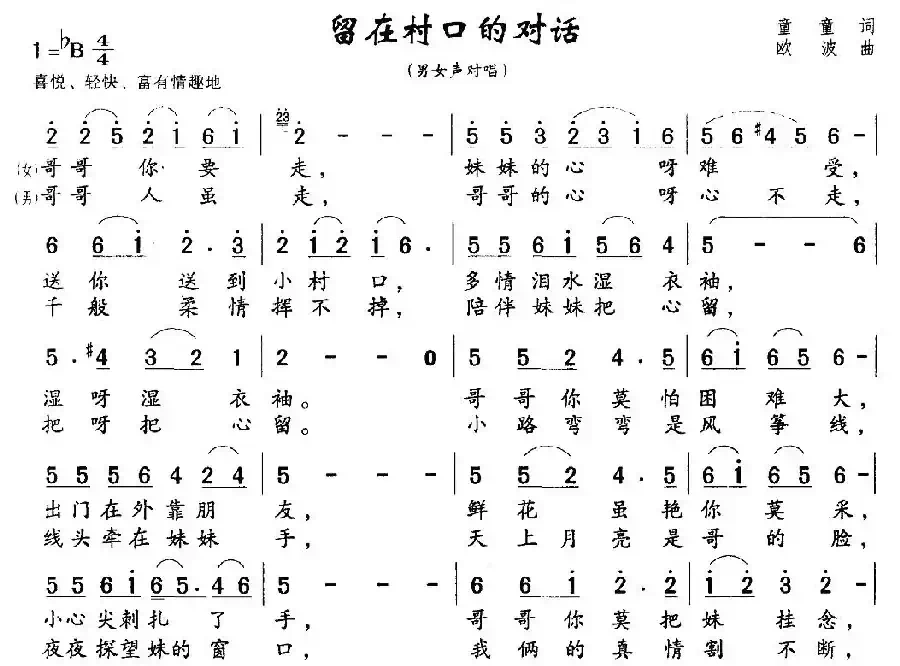 留在村口的对话
童童词
1=♭B 4/4
欧波曲
(男女声对唱)
喜悦、轻快、富有情趣地
2 2 5 2 1 6 1 | 23 2 - - - | 5 5 3 2 3 1 6 | 5 6 #4 5 6 -
(女)哥哥你要走, 妹妹的心呀难受,
(男)哥哥人虽走, 哥哥的心呀心不走,
6 6 1 2. 3 | 2 1 2 1 6. | 5 5 6 1 5 6 4 | 5 - - 6
送你送到小村口, 多情泪水湿衣袖,
千般柔情挥不掉, 陪伴妹妹把心留,
5. #4 3 2 1 | 2 - - 0 | 5 5 2 4. 5 | 6 1 6 5 6 -
湿呀湿衣袖。 哥哥你莫怕困难大,
把呀把心留。 小路弯弯是风筝线,
5 5 5 6 4 2 4 | 5 - - - | 5 5 2 4. 5 | 6 1 6 5 6 -
出门在外靠朋友, 鲜花虽艳你莫采,
线头牵在妹妹手, 天上月亮是哥的脸,
5 5 6 1 6 5. 4 6 | 5 - - - | 6 6 1 2. 2 | 1 2 3 2 -
小心尖刺扎了手, 哥哥你莫把妹挂念,
夜夜探望妹的窗口, 我俩的真情割不断,